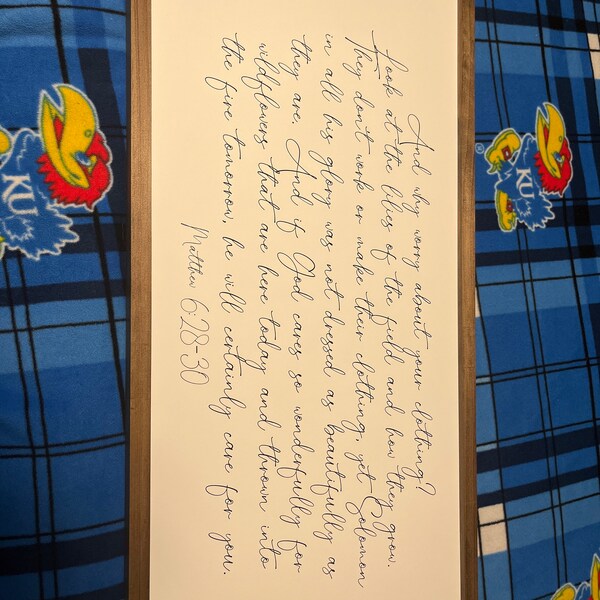 And why worry about your clothing?
Look at the lilies of the field and how they grow.
They don't work or make their clothing, yet Solomon
in all his glory was not dressed as beautifully as
they are. And if God cares so wonderfully for
wildflowers that are here today and thrown into
the fire tomorrow, he will certainly care for you.
Matthew 6:28-30
KU
KU